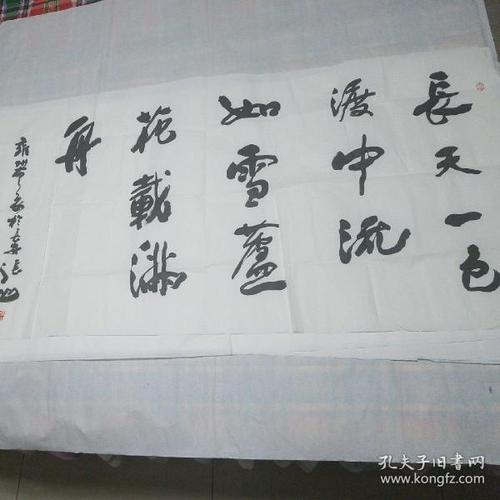 長天一色
渡中流
如雪蘆
花載滿
舟
孔夫子旧书网
www.kongfz.com